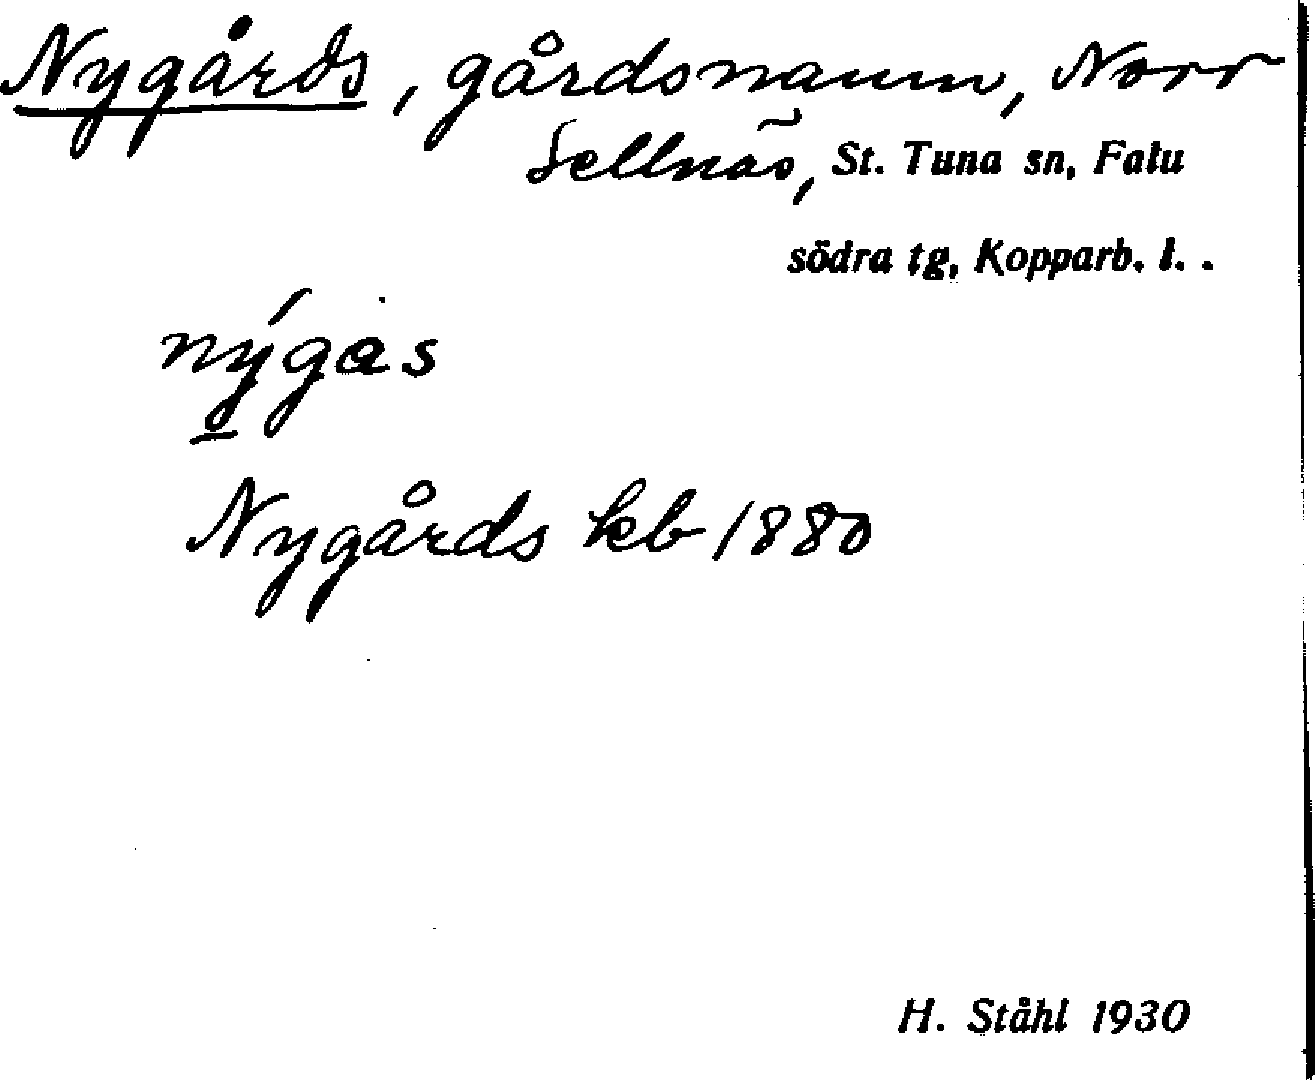 Nygårds, gårdsnamn, Norr
Sellnäs, St. Tuna sn, Falu
södra tg, Kopparb. l. .
nýgas
Nygårds kb 1880
H. Ståhl 1930